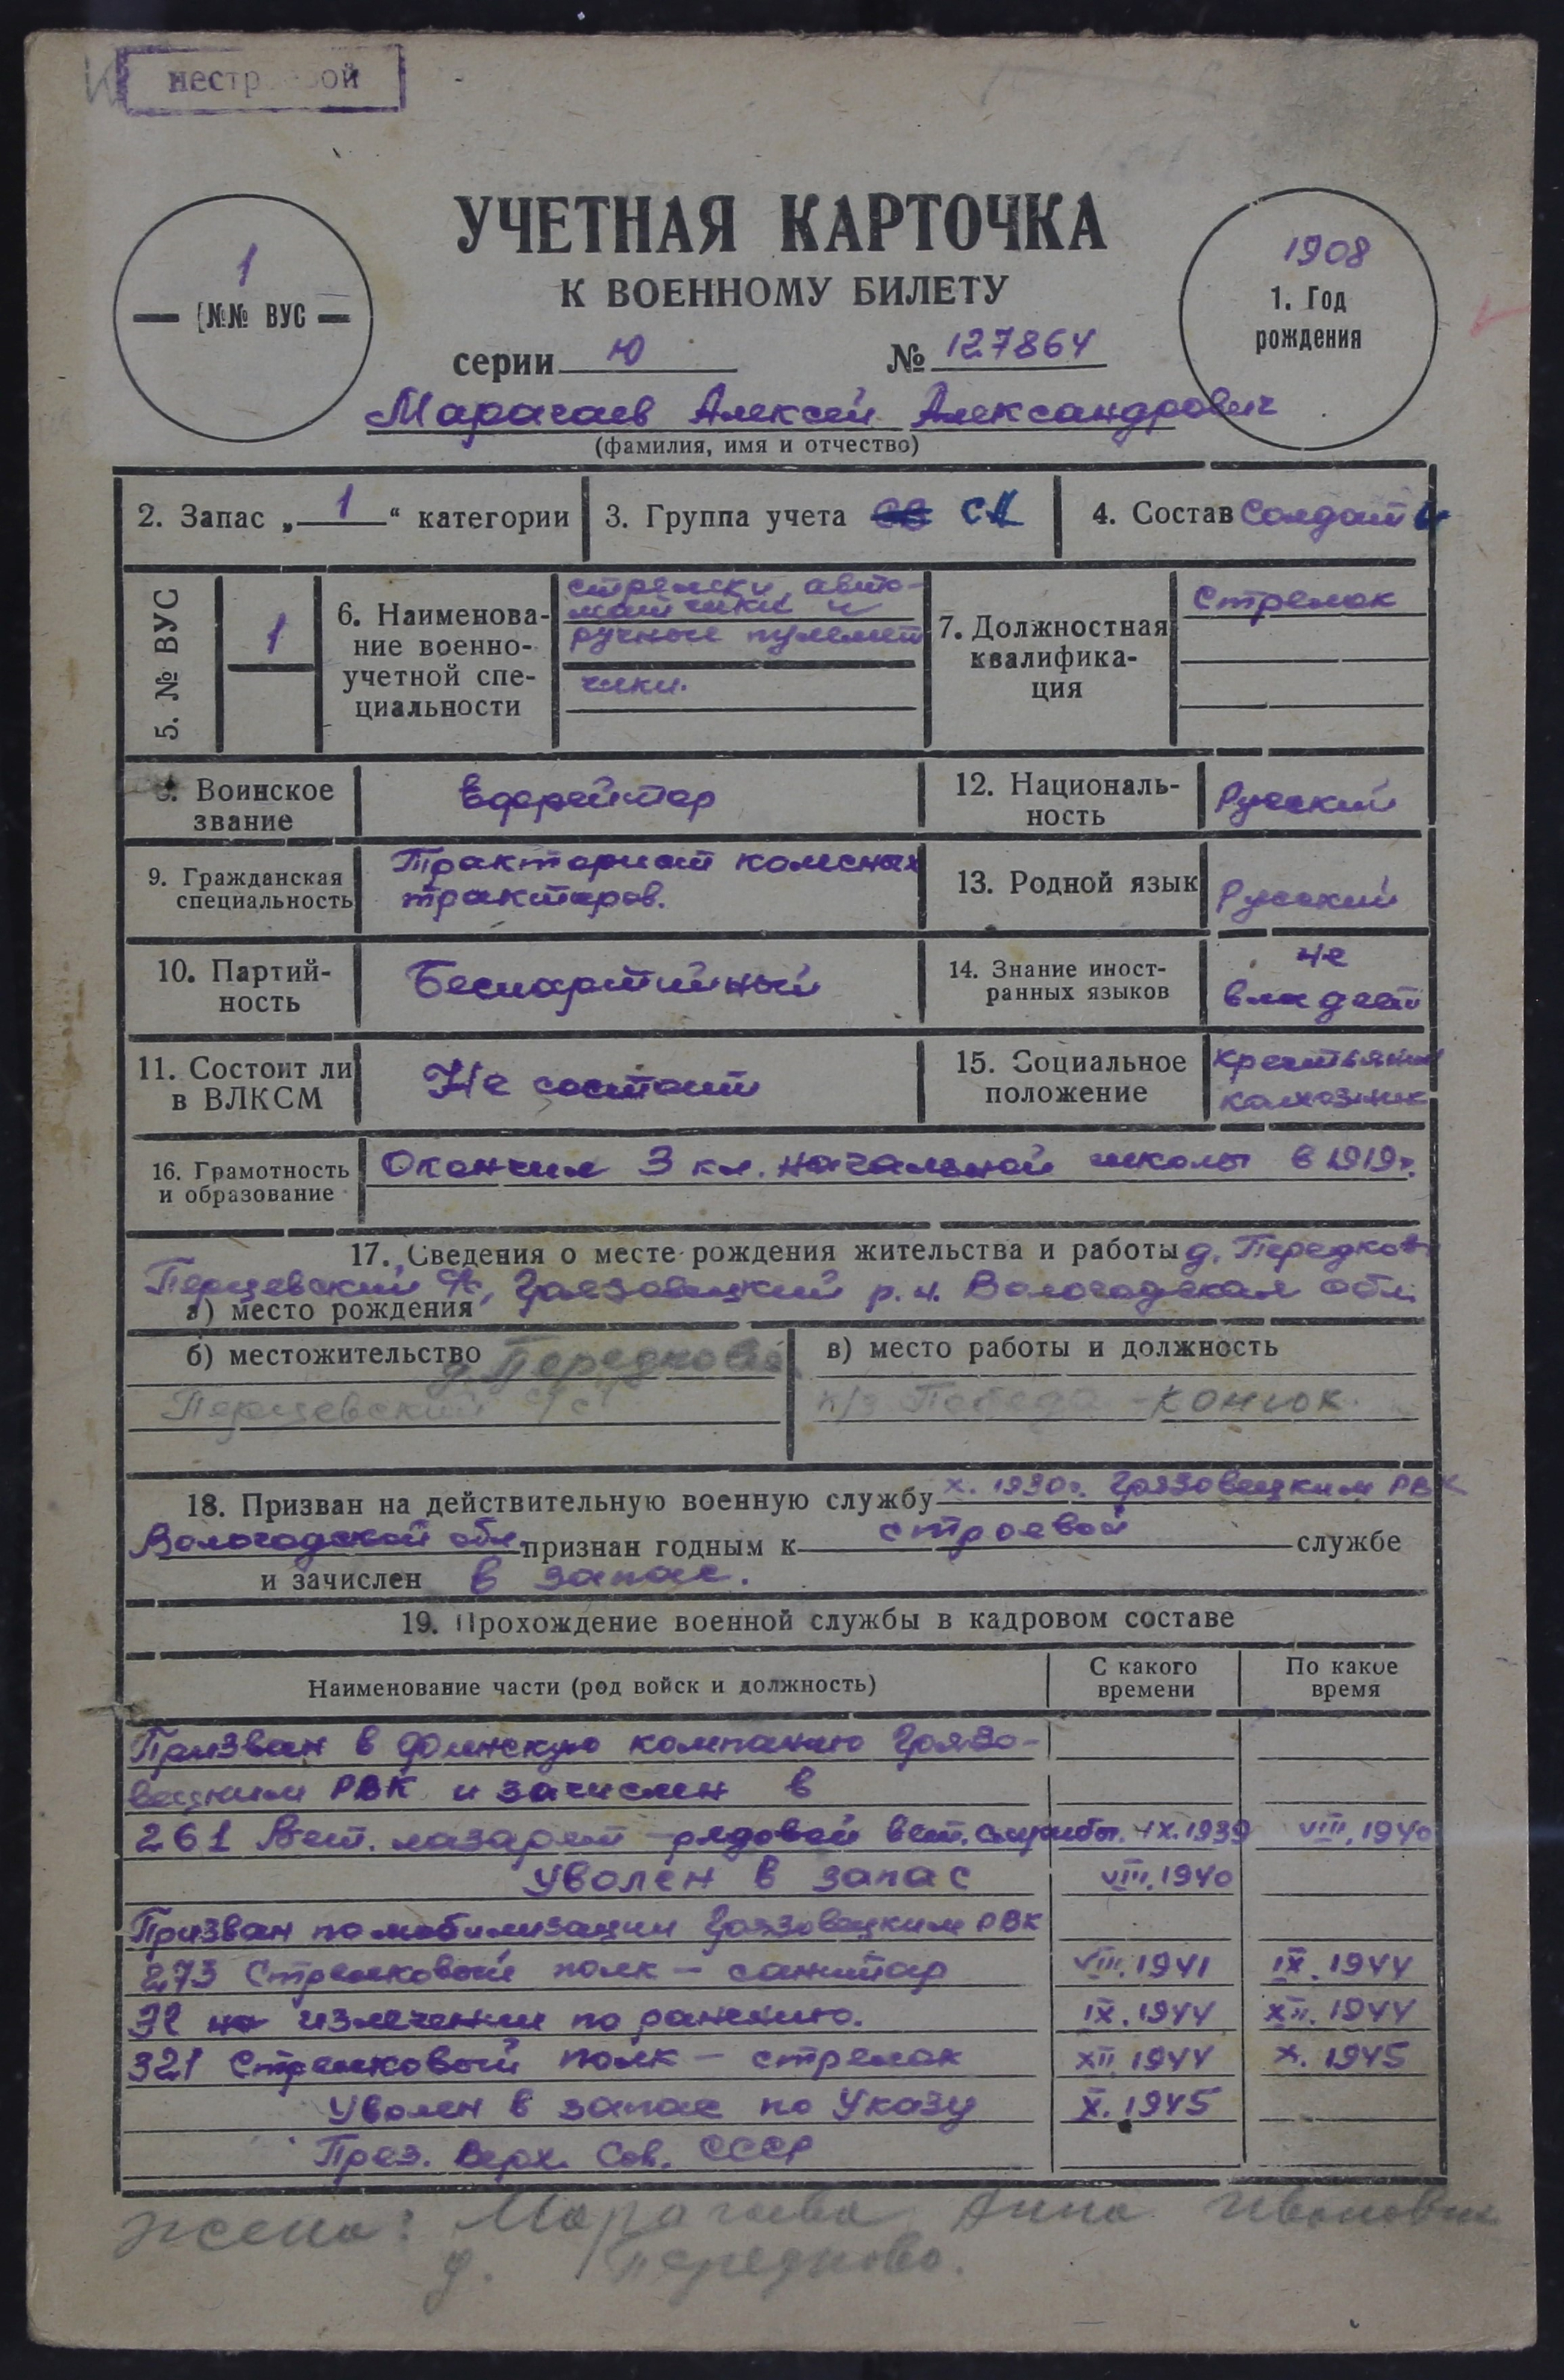 нестроевой
УЧЕТНАЯ КАРТОЧКА
К ВОЕННОМУ БИЛЕТУ
1
№№ ВУС
1908
1. Год
рождения
серии Ю № 127864
Марагаев Алексей Александрович
(фамилия, имя и отчество)
2. Запас „1“ категории
3. Группа учета СА
4. Состав Солдат
5. № ВУС
1
6. Наименова-
ние военно-
учетной спе-
циальности
стрелки, авто-
матчики и
ручные пулемет
чики.
7. Должностная
квалифика-
ция
Стрелок
8. Воинское
звание
Ефрейтор
12. Националь-
ность
Русский
9. Гражданская
специальность
Тракторист колесных
тракторов.
13. Родной язык
Русский
10. Партий-
ность
Беспартийный
14. Знание иност-
ранных языков
не
владеет
11. Состоит ли
в ВЛКСМ
Не состоит
15. Социальное
положение
крестьянин
колхозник
16. Грамотность
и образование
Окончил 3 кл. начальной школы в 1919г.
17. Сведения о месте рождения жительства и работы д. Передково
Перцевский с/с, Грязовецкий р.н. Вологодская обл.
а) место рождения
б) местожительство д. Передково
Перцевский с/с
в) место работы и должность
к/з Победа - конюх.
18. Призван на действительную военную службу X. 1930г. Грязовецким РВК
Вологодской обл. признан годным к строевой службе
и зачислен в запас.
19. Прохождение военной службы в кадровом составе
Наименование части (род войск и должность)
С какого
времени
По какое
время
Призван в финскую компанию Грязо-
вецким РВК и зачислен в
261 Вет. лазарет - рядовой вет. службы. IX.1939 VIII.1940
Уволен в запас VIII.1940
Призван по мобилизации Грязовецким РВК
273 Стрелковый полк - санитар VIII.1941 IX.1944
ЭГ на излечении по ранению. IX.1944 XII.1944
321 Стрелковый полк - стрелок XII.1944 X.1945
Уволен в запас по Указу X.1945
През. Верх. Сов. СССР
жена: Марагаева Анна Ивановна
д. Передково.